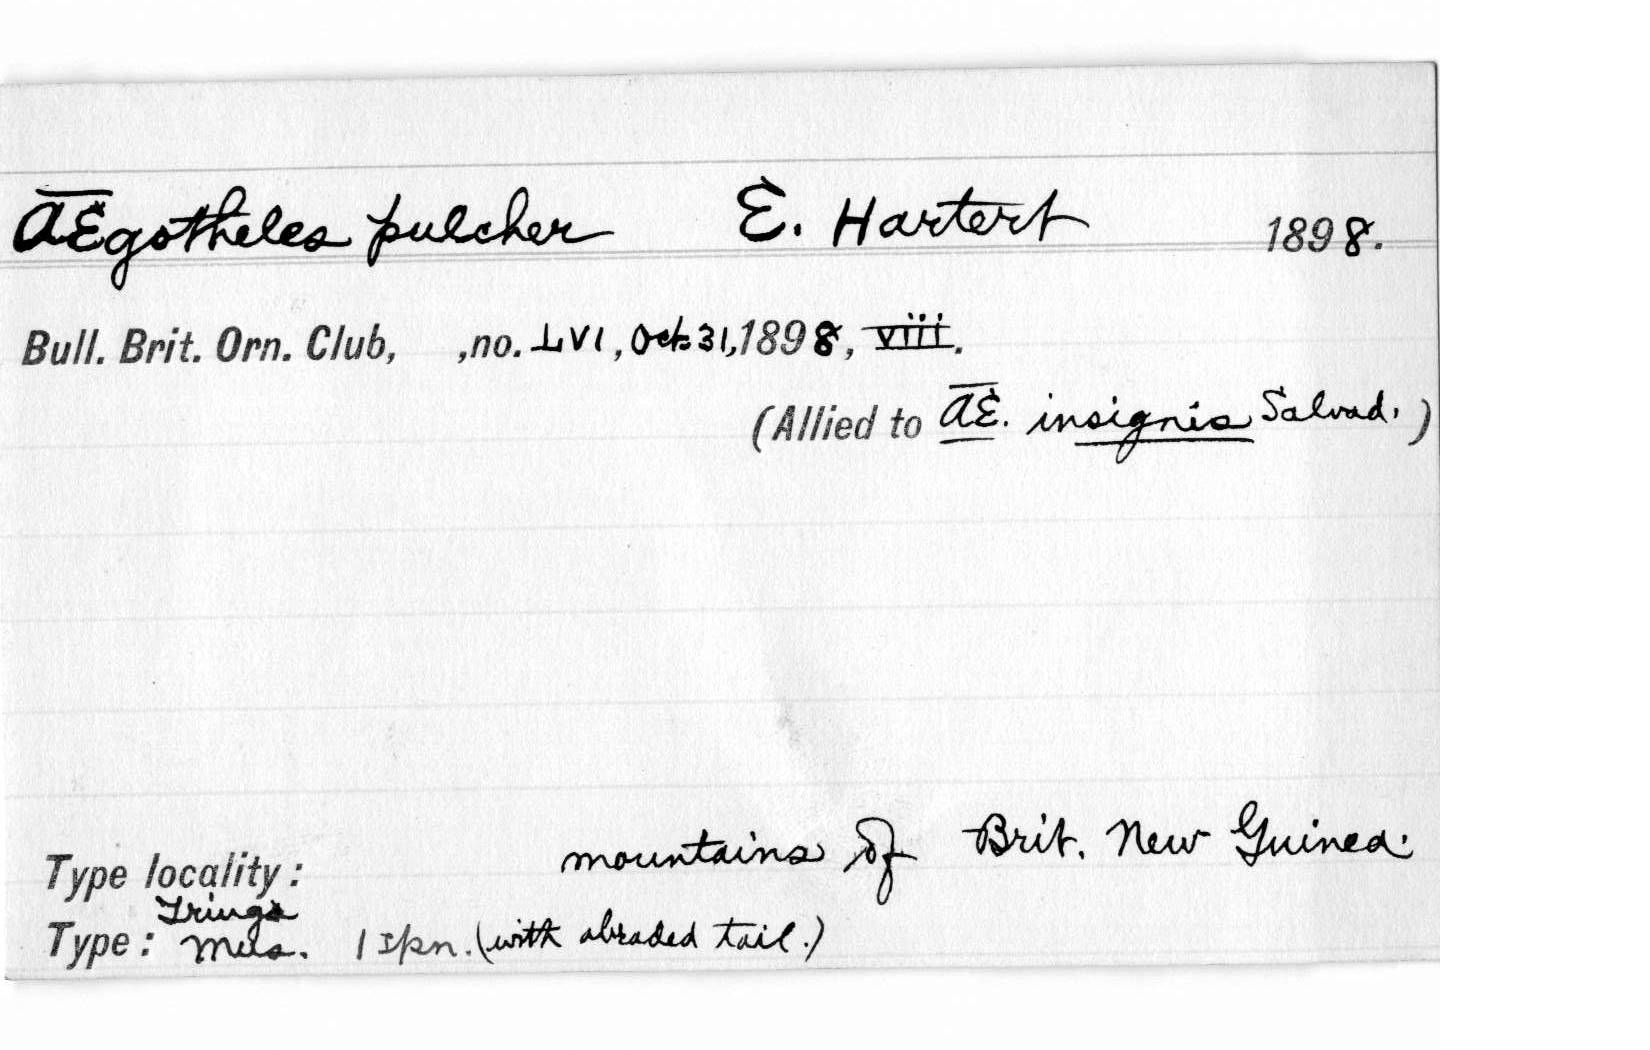 Ægotheles pulcher E. Hartert 1898.
Bull. Brit. Orn. Club, ,no. LVI, Oct. 31, 1898, viii.
(Allied to Æ. insignis Salvad.)
Type locality: mountains of Brit. New Guinea.
Tring
Type: Mus. 1 spn. (with abraded tail.)